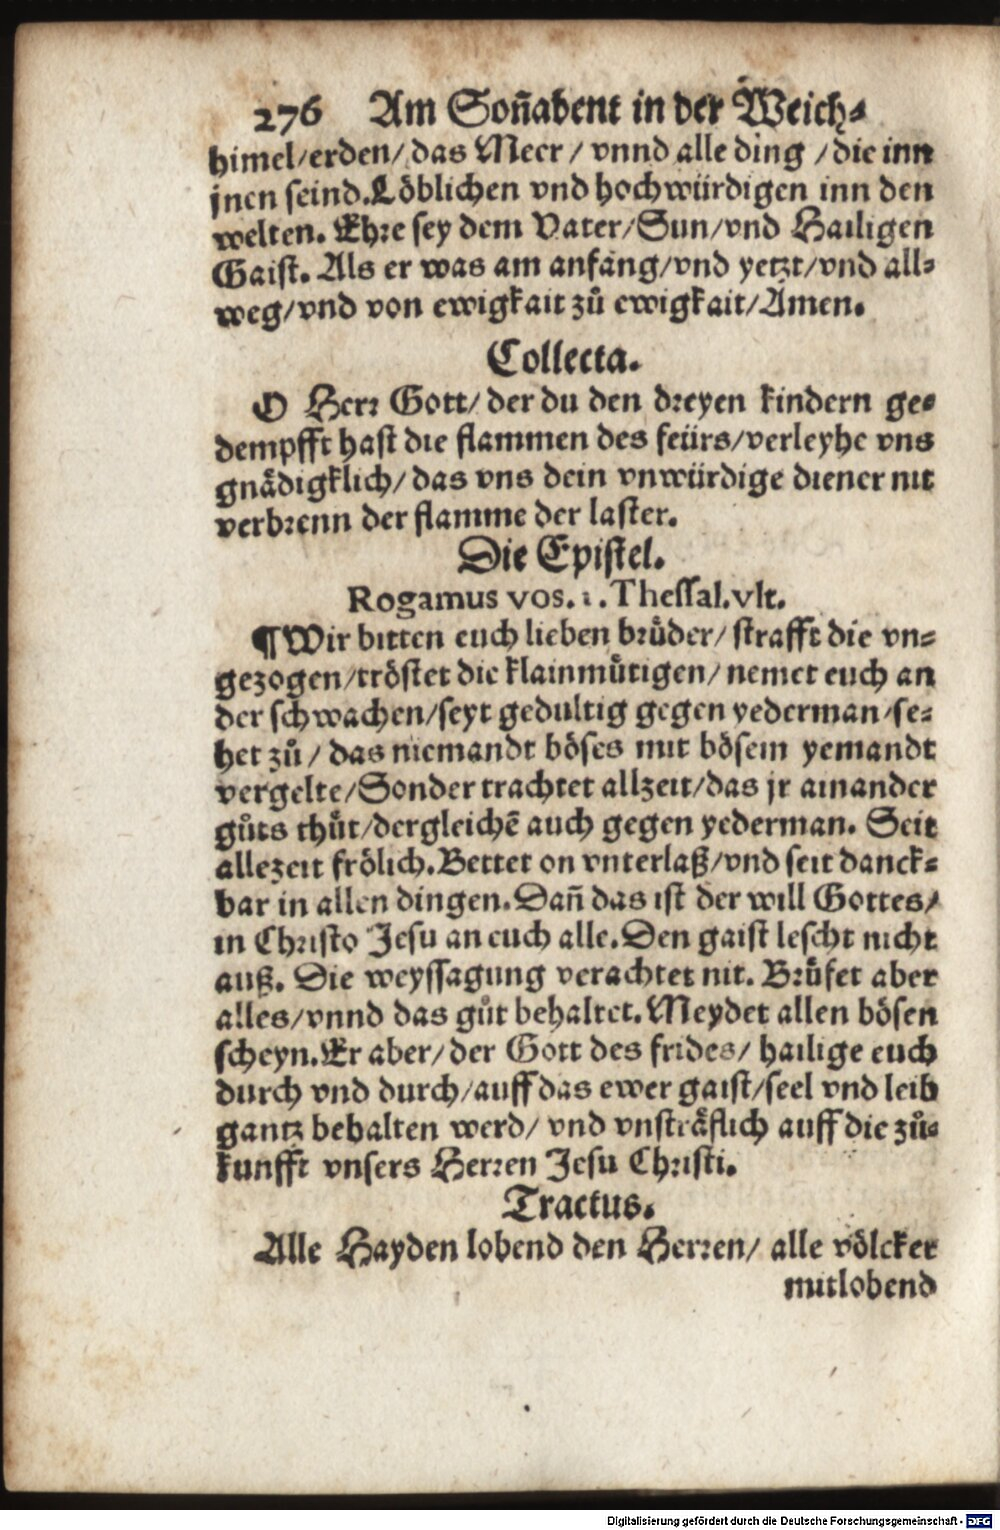 276 Am Soñabent in der Weich⸗
himel/erden/das Meer/ vnnd alle ding /die inn
jnen seind.Löblichen vnd hochwürdigen inn den
welten. Ehre sey dem Vater/Sun/vnd Hailigen
Gaist. Als er was am anfang/vnd yetzt/vnd all⸗
weg/vnd von ewigkait zů ewigkait/Amen.
Collecta.
O Herr Gott/ der du den dreyen kindern ge⸗
dempfft hast die flammen des feürs/verleyhe vns
gnädigklich/ das vns dein vnwürdige diener nit
verbrenn der flamme der laster.
Die Epistel.
Rogamus vos. 1. Thessal.vlt.
¶Wir bitten euch lieben brüder/ strafft die vn⸗
gezogen/tröstet die klainmütigen/ nemet euch an
der schwachen/seyt gedultig gegen yederman/se⸗
het zů/ das niemandt böses mit bösem yemandt
vergelte/Sonder trachtet allzeit/das jr ainander
gůts thůt/dergleichē auch gegen yederman. Seit
allezeit frölich.Bettet on vnterlaß/vnd seit danck⸗
bar in allen dingen.Dañ das ist der will Gottes/
in Christo Jesu an euch alle.Den gaist lescht nicht
auß. Die weyssagung verachtet nit. Brüfet aber
alles/vnnd das gůt behaltet.Meydet allen bösen
scheyn.Er aber/ der Gott des frides/ hailige euch
durch vnd durch/auff das ewer gaist/seel vnd leib
gantz behalten werd/ vnd vnsträflich auff die zů⸗
kunfft vnsers Herren Jesu Christi.
Tractus.
Alle Hayden lobend den Herren/ alle völcker
mitlobend
Digitalisierung gefördert durch die Deutsche Forschungsgemeinschaft - DFG